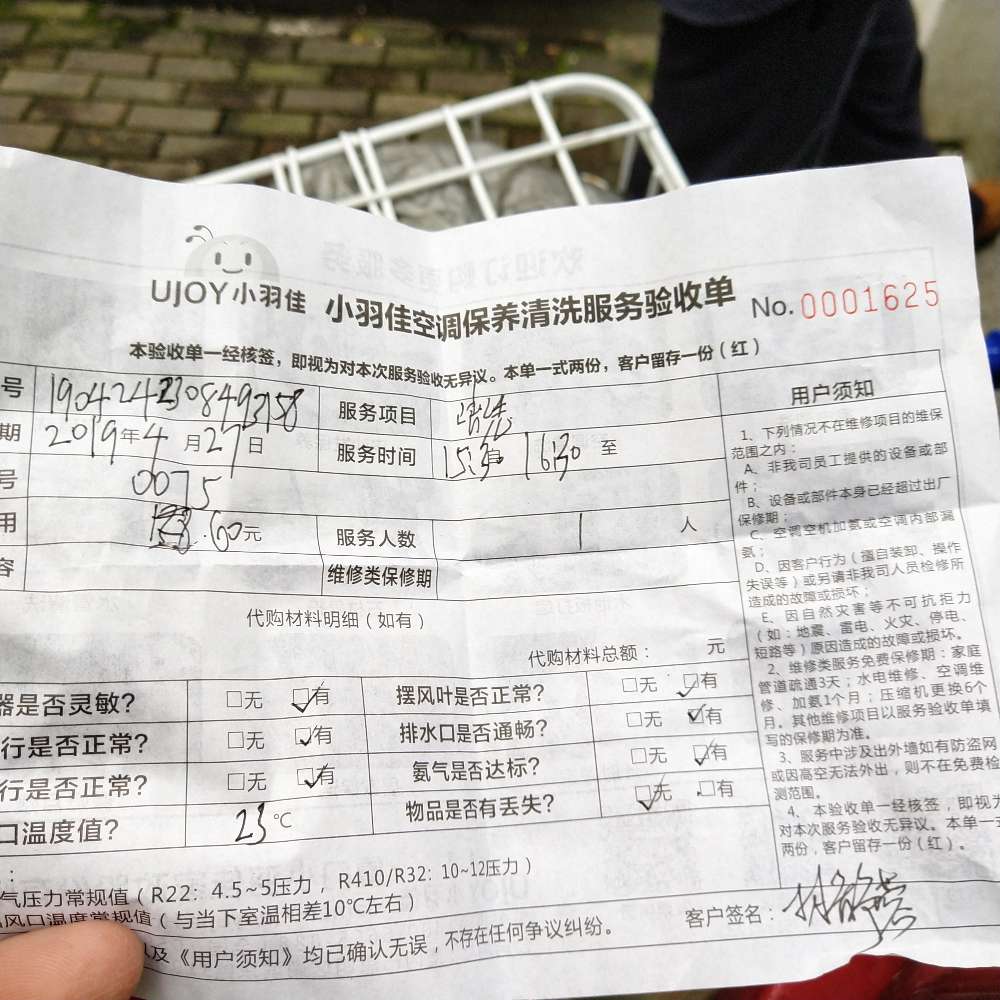 UJOY小羽佳 小羽佳空调保养清洗服务验收单 No.0001625
本验收单一经核签，即视为对本次服务验收无异议。本单一式两份，客户留存一份（红）
号 1904242308493758 服务项目 清洗
期 2019年4月27日 服务时间 15:30 16:30 至
号 0075
用 .60元 服务人数 1 人
容 维修类保修期
代购材料明细（如有）
代购材料总额： 元
器是否灵敏? □无 ☑有 摆风叶是否正常? □无 ☑有
行是否正常? □无 ☑有 排水口是否通畅? □无 ☑有
行是否正常? □无 ☑有 氨气是否达标? □无 ☑有
口温度值? 23℃ 物品是否有丢失? ☑无 □有
：
气压力常规值（R22：4.5~5压力，R410/R32：10~12压力）
风口温度常规值（与当下室温相差10℃左右）
及《用户须知》均已确认无误，不存在任何争议纠纷。
客户签名：
用户须知
1、下列情况不在维修项目的维保
范围之内：
A、非我司员工提供的设备或部
件；
B、设备或部件本身已经超过出厂
保修期；
C、空调空机加氨或空调内部漏
氨；
D、因客户行为（擅自装卸、操作
失误等）或另请非我司人员检修所
造成的故障或损坏；
E、因自然灾害等不可抗拒力
（如：地震、雷电、火灾、停电、
短路等）原因造成的故障或损坏。
2、维修类服务免费保修期：家庭
管道疏通3天；水电维修、空调维
修、加氨1个月；压缩机更换6个
月。其他维修项目以服务验收单填
写的保修期为准。
3、服务中涉及出外墙如有防盗网
或因高空无法外出，则不在免费检
测范围。
4、本验收单一经核签，即视为
对本次服务验收无异议。本单一式
两份，客户留存一份（红）。